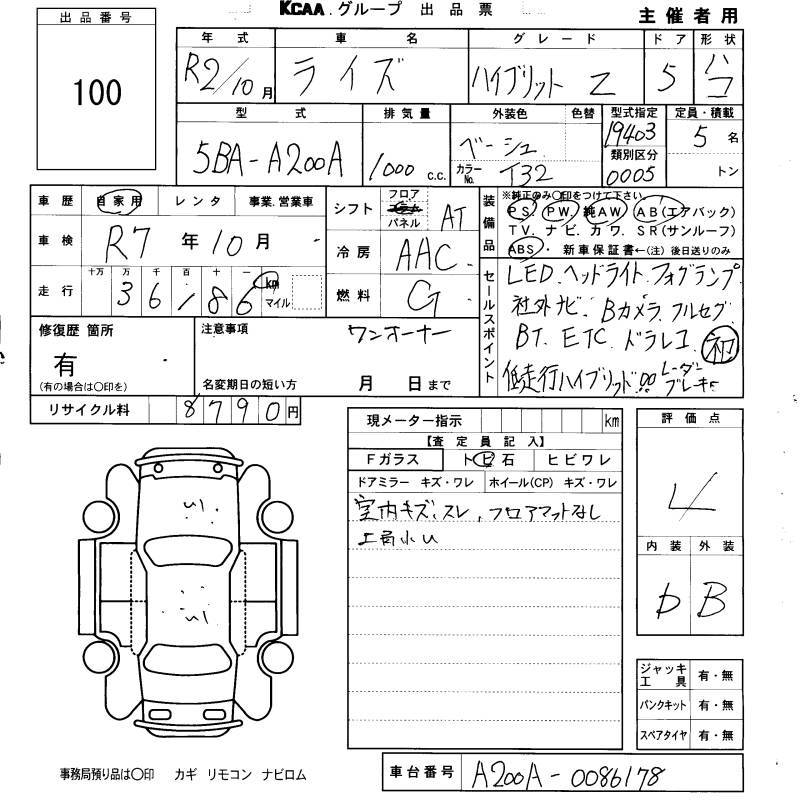 KCAA.グループ 出品票
主催者用
出品番号
100
年式 車名 グレード ドア 形状
R2/10月 ライズ ハイブリット Z 5 ハコ
型式 排気量 外装色 色替 型式指定 定員・積載
5BA-A200A 1000 c.c. ベージュ 19403 5名
カラーNo. T32 類別区分 0005 トン
車歴 自家用 レンタ 事業.営業車
車検 R7年10月
走行 十万 万 千 百 十 一
36186 km マイル
シフト フロア コラム パネル AT
冷房 AAC
燃料 G
装備品 ※純正のみ〇印をつけて下さい
PS PW. 純AW AB(エアバック)
TV. ナビ. カワ. SR(サンルーフ)
ABS・ 新車保証書←(注) 後日送りのみ
セールスポイント
LED.ヘッドライト.フォグランプ.
社外ナビ.Bカメラ.フルセグ.
BT. ETC. ドラレコ
低走行ハイブリッド!! レーダーブレーキ
修復歴 箇所
有
(有の場合は〇印を)
注意事項 ワンオーナー
名変期日の短い方 月 日まで
リサイクル料 8790円
現メーター指示 km
【査定員記入】
Fガラス トビ石 ヒビワレ
ドアミラー キズ・ワレ ホイール(CP) キズ・ワレ
室内キズ、スレ、フロアマットなし
評価点
4
内装 外装
B
ジャッキ工具 有・無
パンクキット 有・無
スペアタイヤ 有・無
事務局預り品は〇印 カギ リモコン ナビロム
車台番号 A200A-0086178